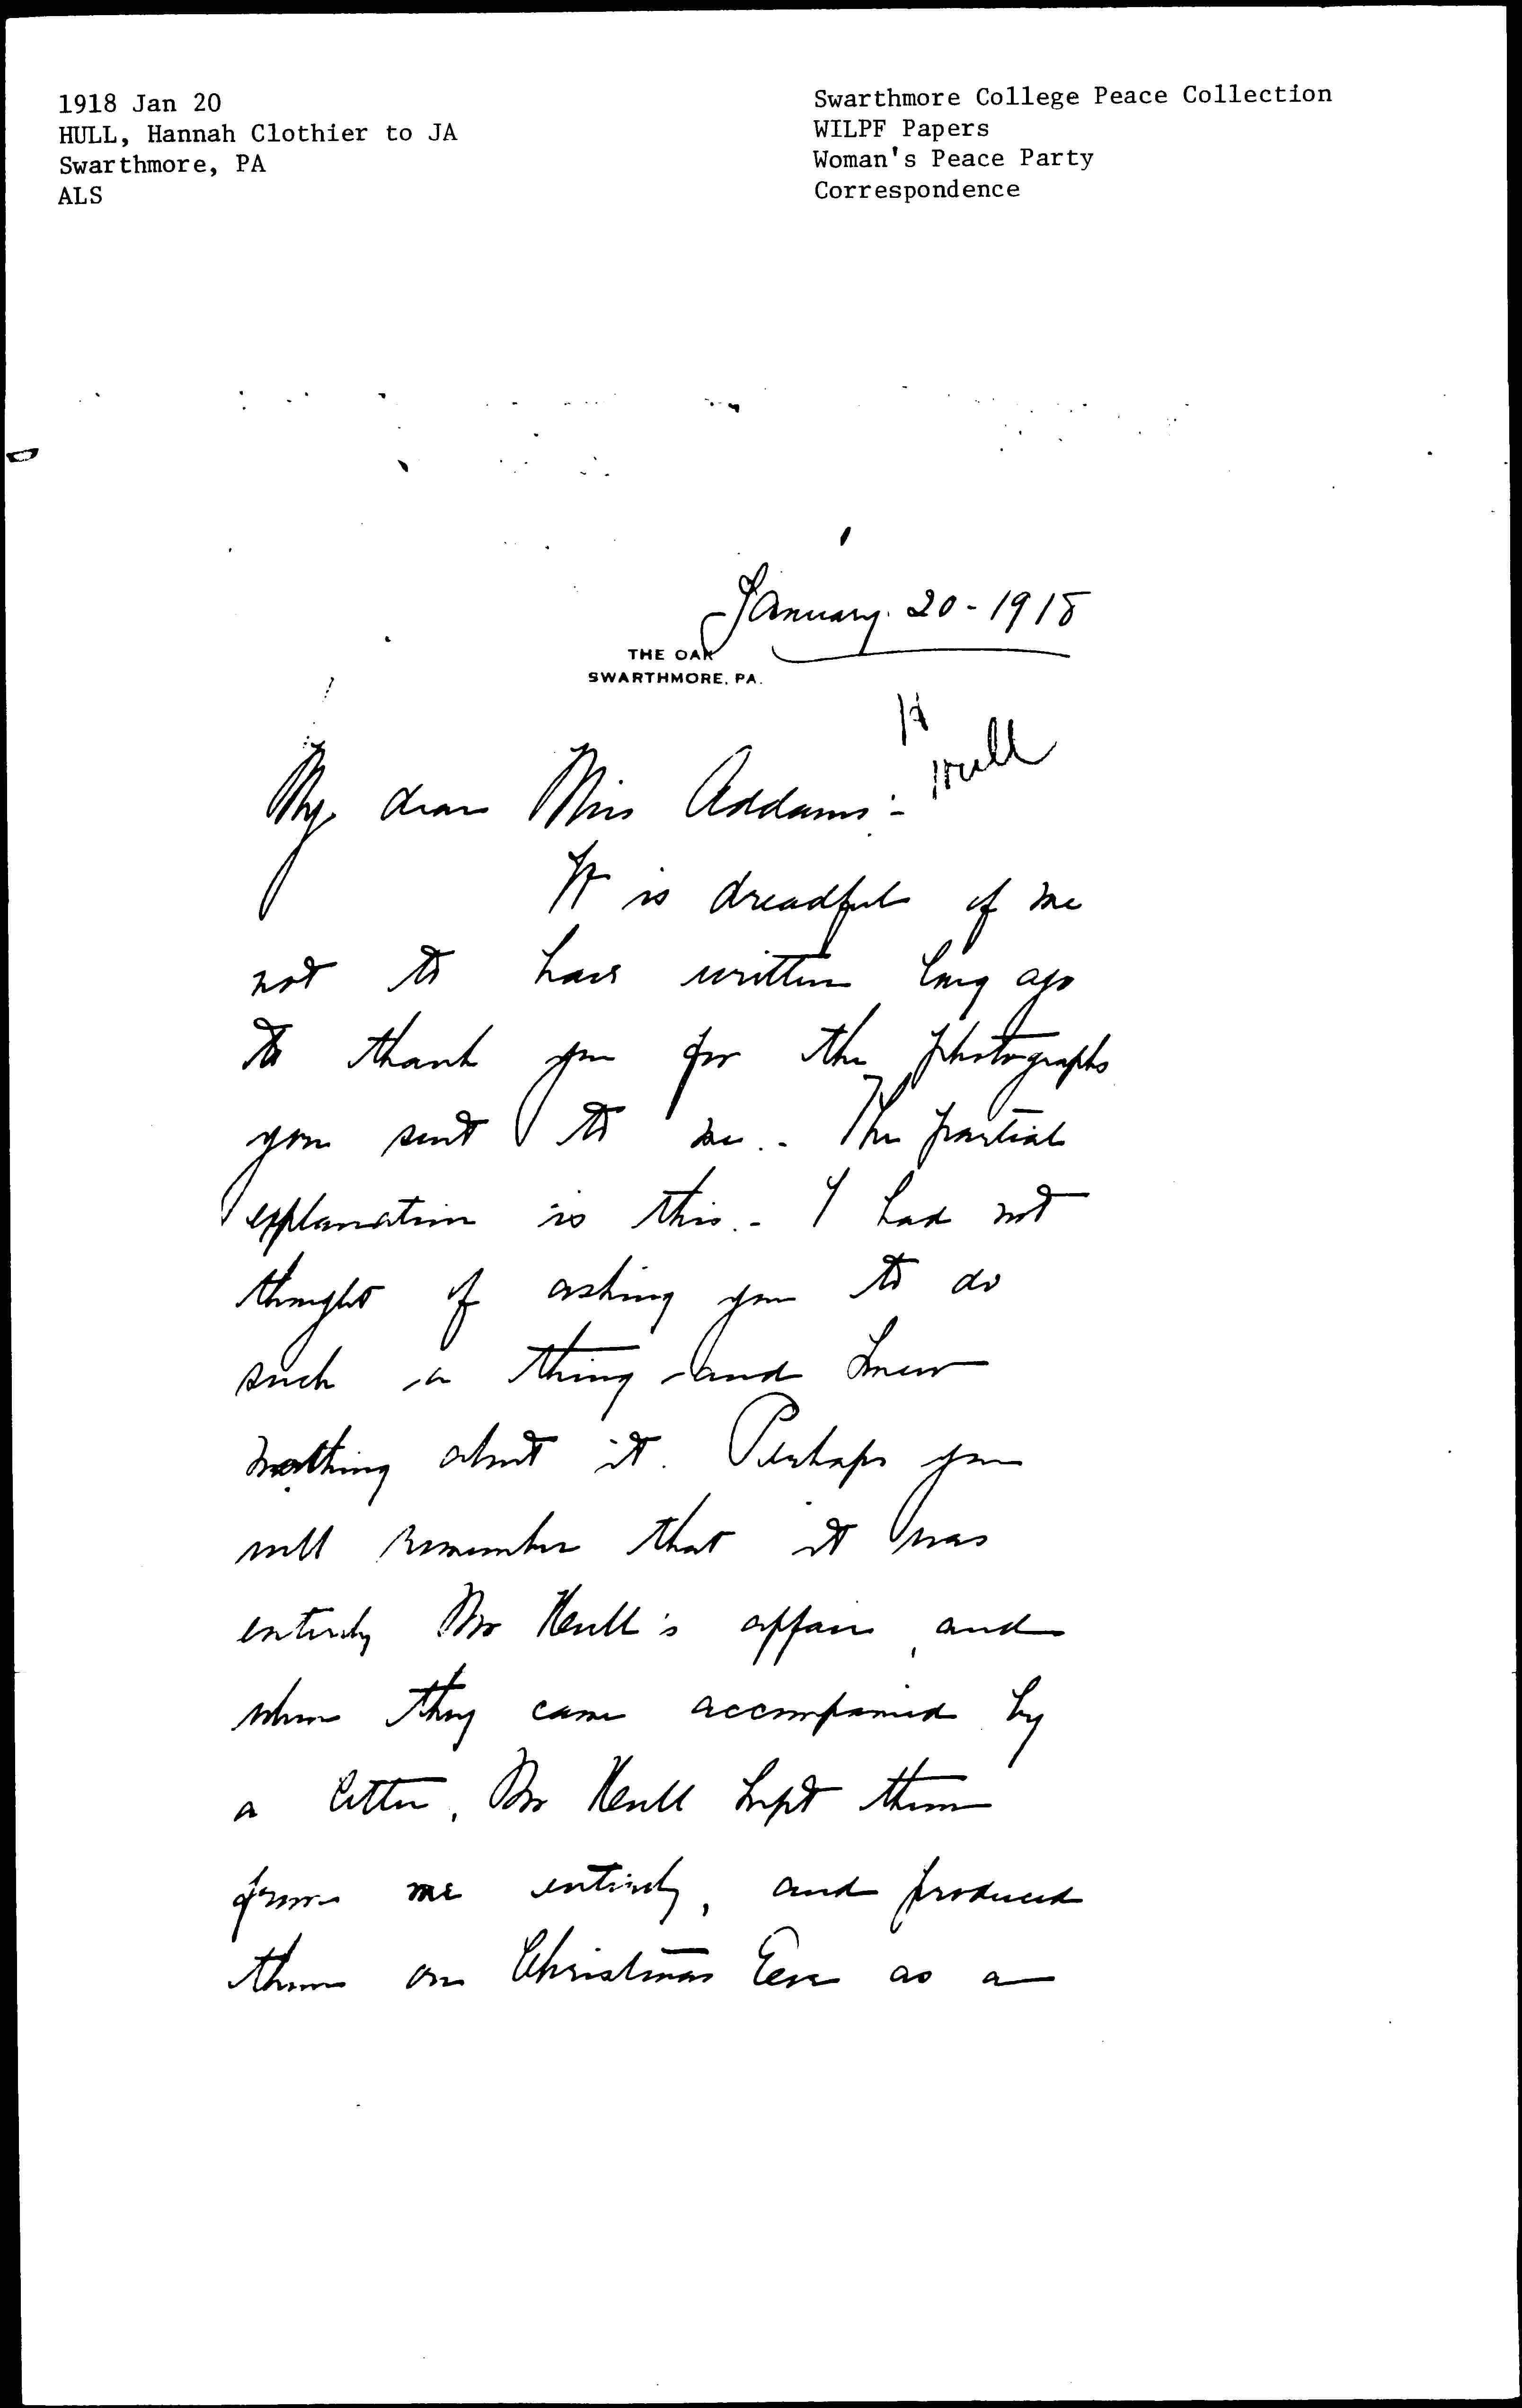 1918 Jan 20
HULL, Hannah Clothier to JA
Swarthmore, PA
ALS
Swarthmore College Peace Collection
WILPF Papers
Woman's Peace Party
Correspondence
January. 20 - 1918
THE OAK
SWARTHMORE, PA.
Hull
My dear Miss Addams:-
It is dreadful of me
not to have written long ago
to thank you for the photographs
you sent to me.- The partial
explanation is this.- I had not
thought of asking you to do
such a thing - and knew
nothing about it. Perhaps you
will remember that it was
entirely Mr Hull's affair, and
when they came accompanied by
a letter, Mr Hull kept them
from me entirely, and produced
them on Christmas Eve as a